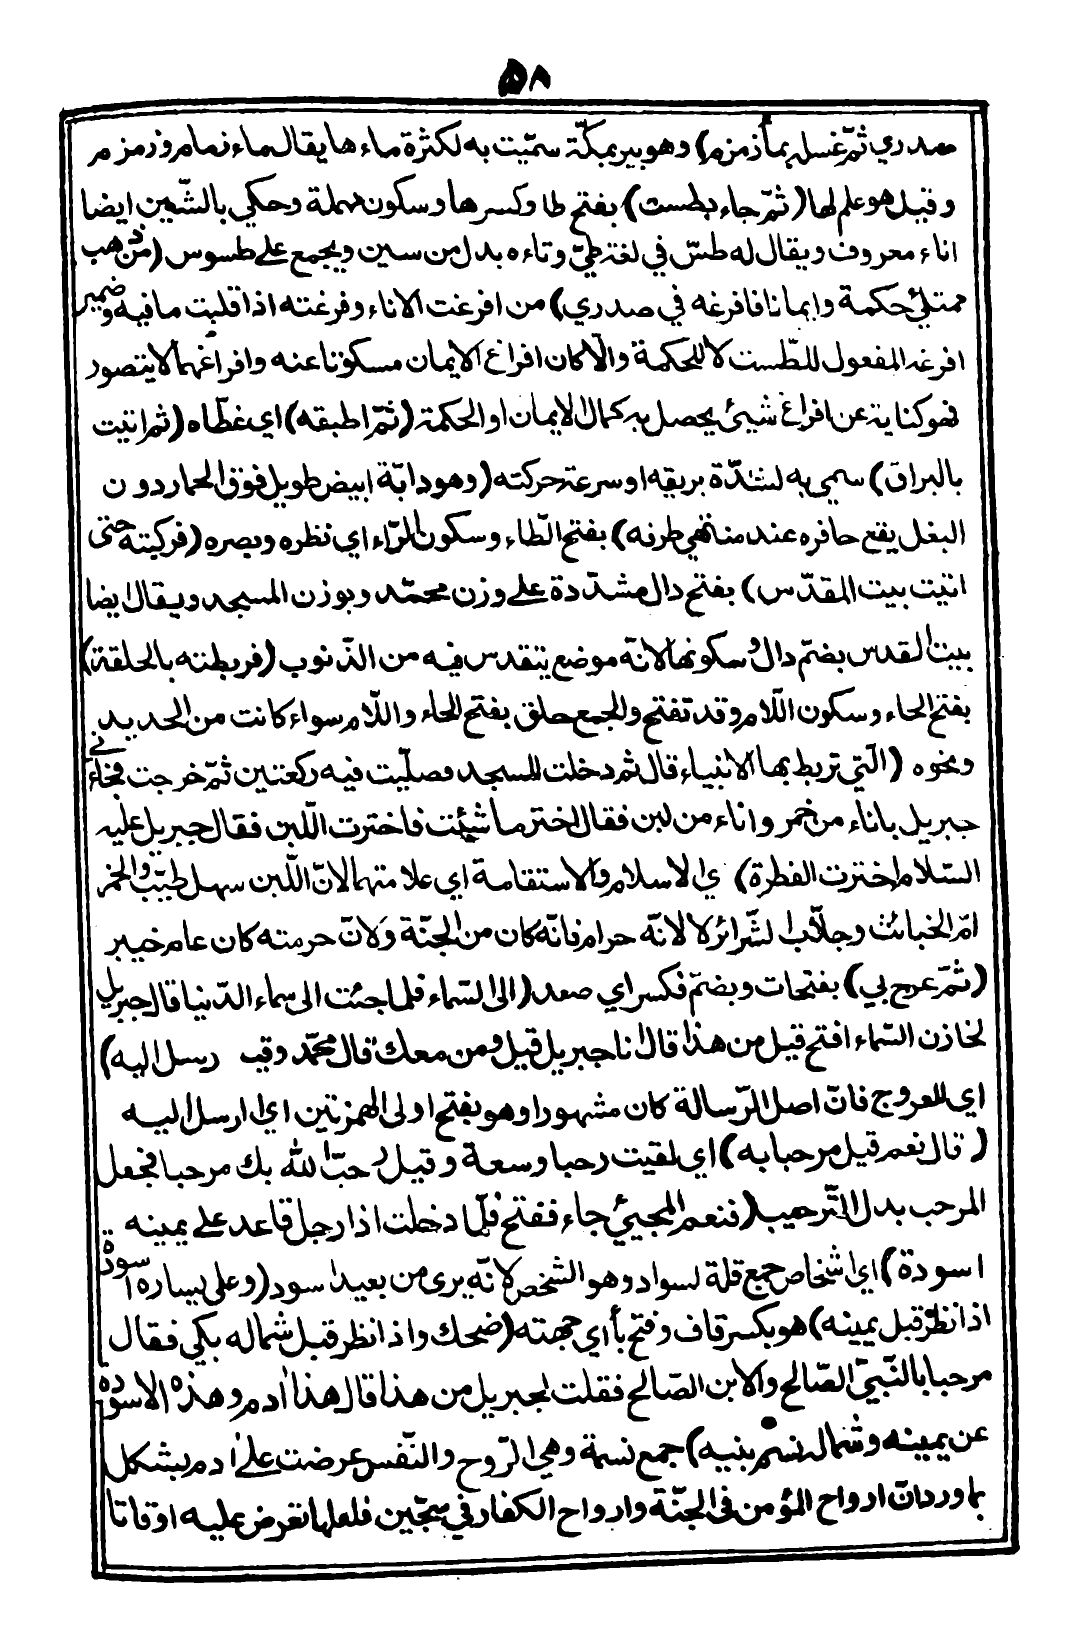 ٥٨
صدري ثمّ غسله بماء زمزم) وهو بير بمكّة سمّيت به لكثرة ماءها يقال ماء زمام وزمزم
وقيل هو علم لها (ثمّ جاء بطست) بفتح طا وكسرها وسكون مهملة وحكي بالشّين ايضا
اناء معروف ويقال له طسّ في لغة طيّ وتاءه بدل من سين ويجمع على طسوس (من ذهب
ممتلئ حكمة وايمانا فافرغه في صدري) من افرغت الاناء وفرغته اذا قلبت ما فيه وضمير
افرغه المفعول للطّست لا للحكمة والّا كان افراغ الايمان مسكوتا عنه وافراغهما لا يتصور
فهو كناية عن افراغ شيئ يحصل به كمال الايمان او الحكمة (ثمّ اطبقه) اي غطّاه (ثم اتيت
بالبراق) سمي به لشدّة بريقه او سرعة حركته (وهو دابّة ابيض طويل فوق الحمار دون
البغل يقع حافره عند منتهى طرفه) بفتح الطّاء وسكون الرّاء اي نظره وبصره (فركبته حتى
اتيت بيت المقدّس) بفتح دال مشدّدة على وزن محمّد وبوزن المسجد ويقال ايضا
بيت القدس بضمّ دال وسكونها لانّه موضع يتقدس فيه من الذّنوب (فربطته بالحلقة)
بفتح الحاء وسكون اللّام وقد تفتح والجمع حلق بفتح الحاء واللّام سواء كانت من الحديد
ونحوه (الّتي تربط بها الانبياء قال ثم دخلت المسجد فصلّيت فيه ركعتين ثمّ خرجت فجاءني
جبريل باناء من خمر واناء من لبن فقال اختر ما شئت فاخترت اللّبن فقال جبريل عليه
السّلام اخترت الفطرة) اي الاسلام والاستقامة اي علامتهما لانّ اللّبن سهل طيّب والخمر
امّ الخبائث وجلّاب لشّرائر لا لانّه حرام فانّه كان من الجنّة ولانّ حرمته كان عام خيبر
(ثمّ عرج بي) بفتحات وبضمّ فكسر اي صعد (الى السّماء فلما جئت الى سماء الدّنيا قال جبريل
لخازن السّماء افتح قيل من هذا قال انا جبريل قيل ومن معك قال محمّد وقيل رسل اليه)
اي للعروج فانّ اصل الرّسالة كان مشهورا وهو بفتح اولى الهمزتين اي ا ارسل اليه
(قال نعم قيل مرحبا به) اي لقيت رحبا وسعة وقيل رحبّ الله بك مرحبا فجعل
المرحب بدل التّرحيب (فنعم المجيئ جاء ففتح فلمّا دخلت اذا رجل قاعد على يمينه
اسودة) اي اشخاص جمع قلة لسواد وهو الشخص لانّه يرى من بعيد اسود (وعلى يساره اسودة
اذا نظر قبل يمينه) هو بكسر قاف وفتح بأ اي جهته (ضحك واذا نظر قبل شماله بكي فقال
مرحبا بالنّبيّ الصّالح والابن الصّالح فقلت لجبريل من هذا قال هذا ادم وهذه الاسودة
عن يمينه وشماله نسم بنيه) جمع نسمة وهي الرّوح والنّفس عرضت على ادم بشكل
بما ورد انّ ارواح المؤمن في الجنّة وارواح الكفار في سجّين فلعلها تعرض عليه اوقاتا